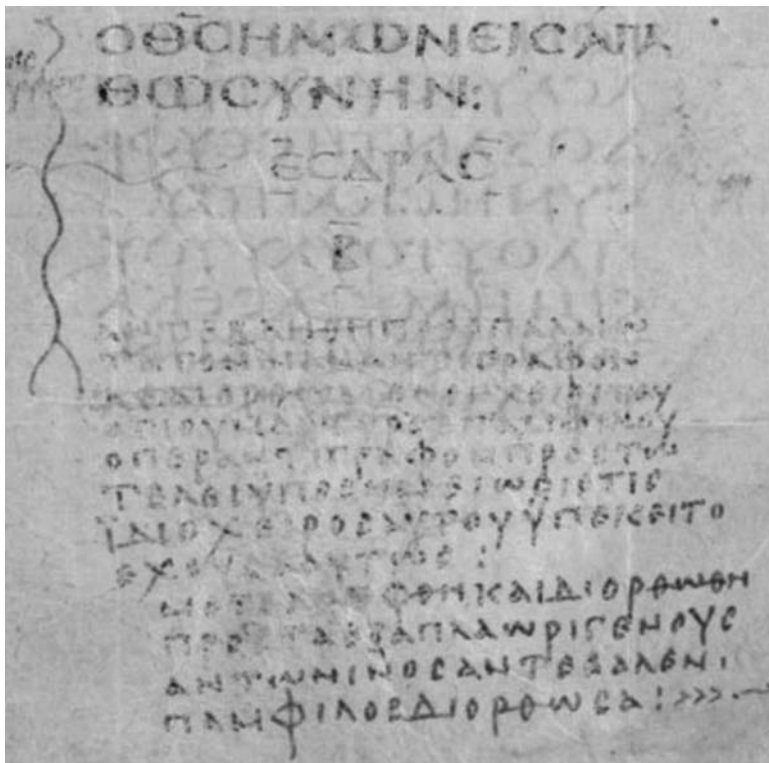 ΟΘ̅Ϲ̅ΗΜΩΝΕΙϹΑΓΑ
ΘΩϹΥΝΗΝ:
ΕϹΔΡΑϹ
Β̅
ΑΝΤΕΒΛΗΘΗΠΡΟϹΠΑΛΑΙΩ
ΤΑΤΟΝΛΙΑΝΑΝΤΙΓΡΑΦΟΝ
ΔΕΔΙΟΡΘΩΜΕΝΟΝΧΕΙΡΙΤΟΥ
ΑΓΙΟΥΜΑΡΤΥΡΟϹΠΑΜΦΙΛΟΥ
ΟΠΕΡΑΝΤΙΓΡΑΦΟΝΠΡΟϹΤΩ
ΤΕΛΕΙΥΠΟϹΗΜΕΙΩϹΙϹΤΙϹ
ΪΔΙΟΧΕΙΡΟϹΑΥΤΟΥΫΠΕΚΕΙΤΟ
ΕΧΟΥϹΑΟΥΤΩϹ:
ΜΕΤΕΛΗΜΦΘΗΚΑΙΔΙΟΡΘΩΘΗ
ΠΡΟϹΤΑΕΞΑΠΛΑΩΡΙΓΕΝΟΥϹ
ΑΝΤΩΝΙΝΟϹΑΝΤΕΒΑΛΕΝ·
ΠΑΜΦΙΛΟϹΔΙΟΡΘΩϹΑ:>>>·~